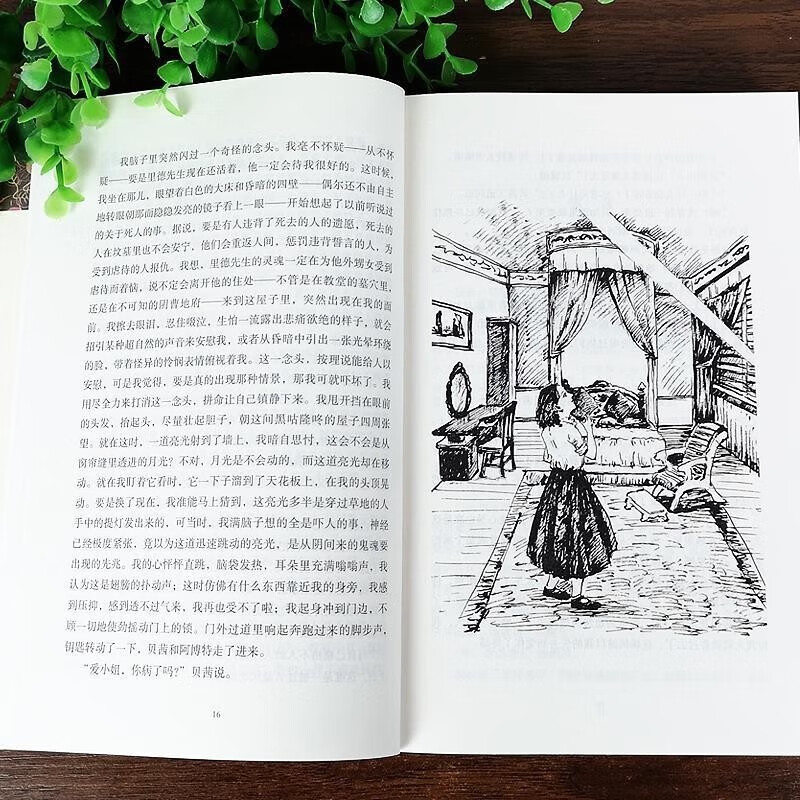 我脑子里突然闪过一个奇怪的念头。我毫不怀疑——从不怀
疑——要是里德先生现在还活着，他一定会待我很好的。这时候，
我坐在那儿，眼望着白色的大床和昏暗的四壁——偶尔还不由自主
地转眼朝那面隐隐发亮的镜子看上一眼——开始想起了以前听说过
的关于死人的事。据说，要是有人违背了死去的人的遗愿，死去的
人在坟墓里也不会安宁，他们会重返人间，惩罚违背誓言的人，为
受到虐待的人报仇。我想，里德先生的灵魂一定在为他外甥女受到
虐待而着恼，说不定会离开他的住处——不管是在教堂的墓穴里，
还是在不可知的阴曹地府——来到这屋子里，突然出现在我的面
前。我擦去眼泪，忍住啜泣，生怕一流露出悲痛欲绝的样子，就会
招引某种超自然的声音来安慰我，或者从昏暗中引出一张光晕环绕
的脸，带着怪异的怜悯表情俯视着我。这一念头，按理说能给人以
安慰，可是我觉得，要是真的出现那种情景，那我可就吓坏了。我
用尽全力来打消这一念头，拼命让自己镇静下来。我甩开挡在眼前
的头发，抬起头，尽量壮起胆子，朝这间黑咕隆咚的屋子四周张
望。就在这时，一道亮光射到了墙上，我暗自思忖，这会不会是从
窗帘缝里透进的月光？不对，月光是不会动的，而这道亮光却在移
动。就在我盯着它看时，它一下子溜到了天花板上，在我的头顶晃
动。要是换了现在，我准能马上猜到，这亮光多半是穿过草地的人
手中的提灯发出来的，可当时，我满脑子想的全是吓人的事，神经
已经极度紧张，竟以为这道迅速跳动的亮光，是从阴间来的鬼魂要
出现的先兆。我的心怦怦直跳，脑袋发热，耳朵里充满嗡嗡声，我
认为这是翅膀的扑动声；这时仿佛有什么东西靠近我的身旁，我感
到压抑，感到透不过气来，我再也受不了啦；我起身冲到门边，不
顾一切地使劲摇动门上的锁。门外过道里响起奔跑过来的脚步声，
钥匙转动了一下，贝茜和阿博特走了进来。
“爱小姐，你病了吗？”贝茜说。
16